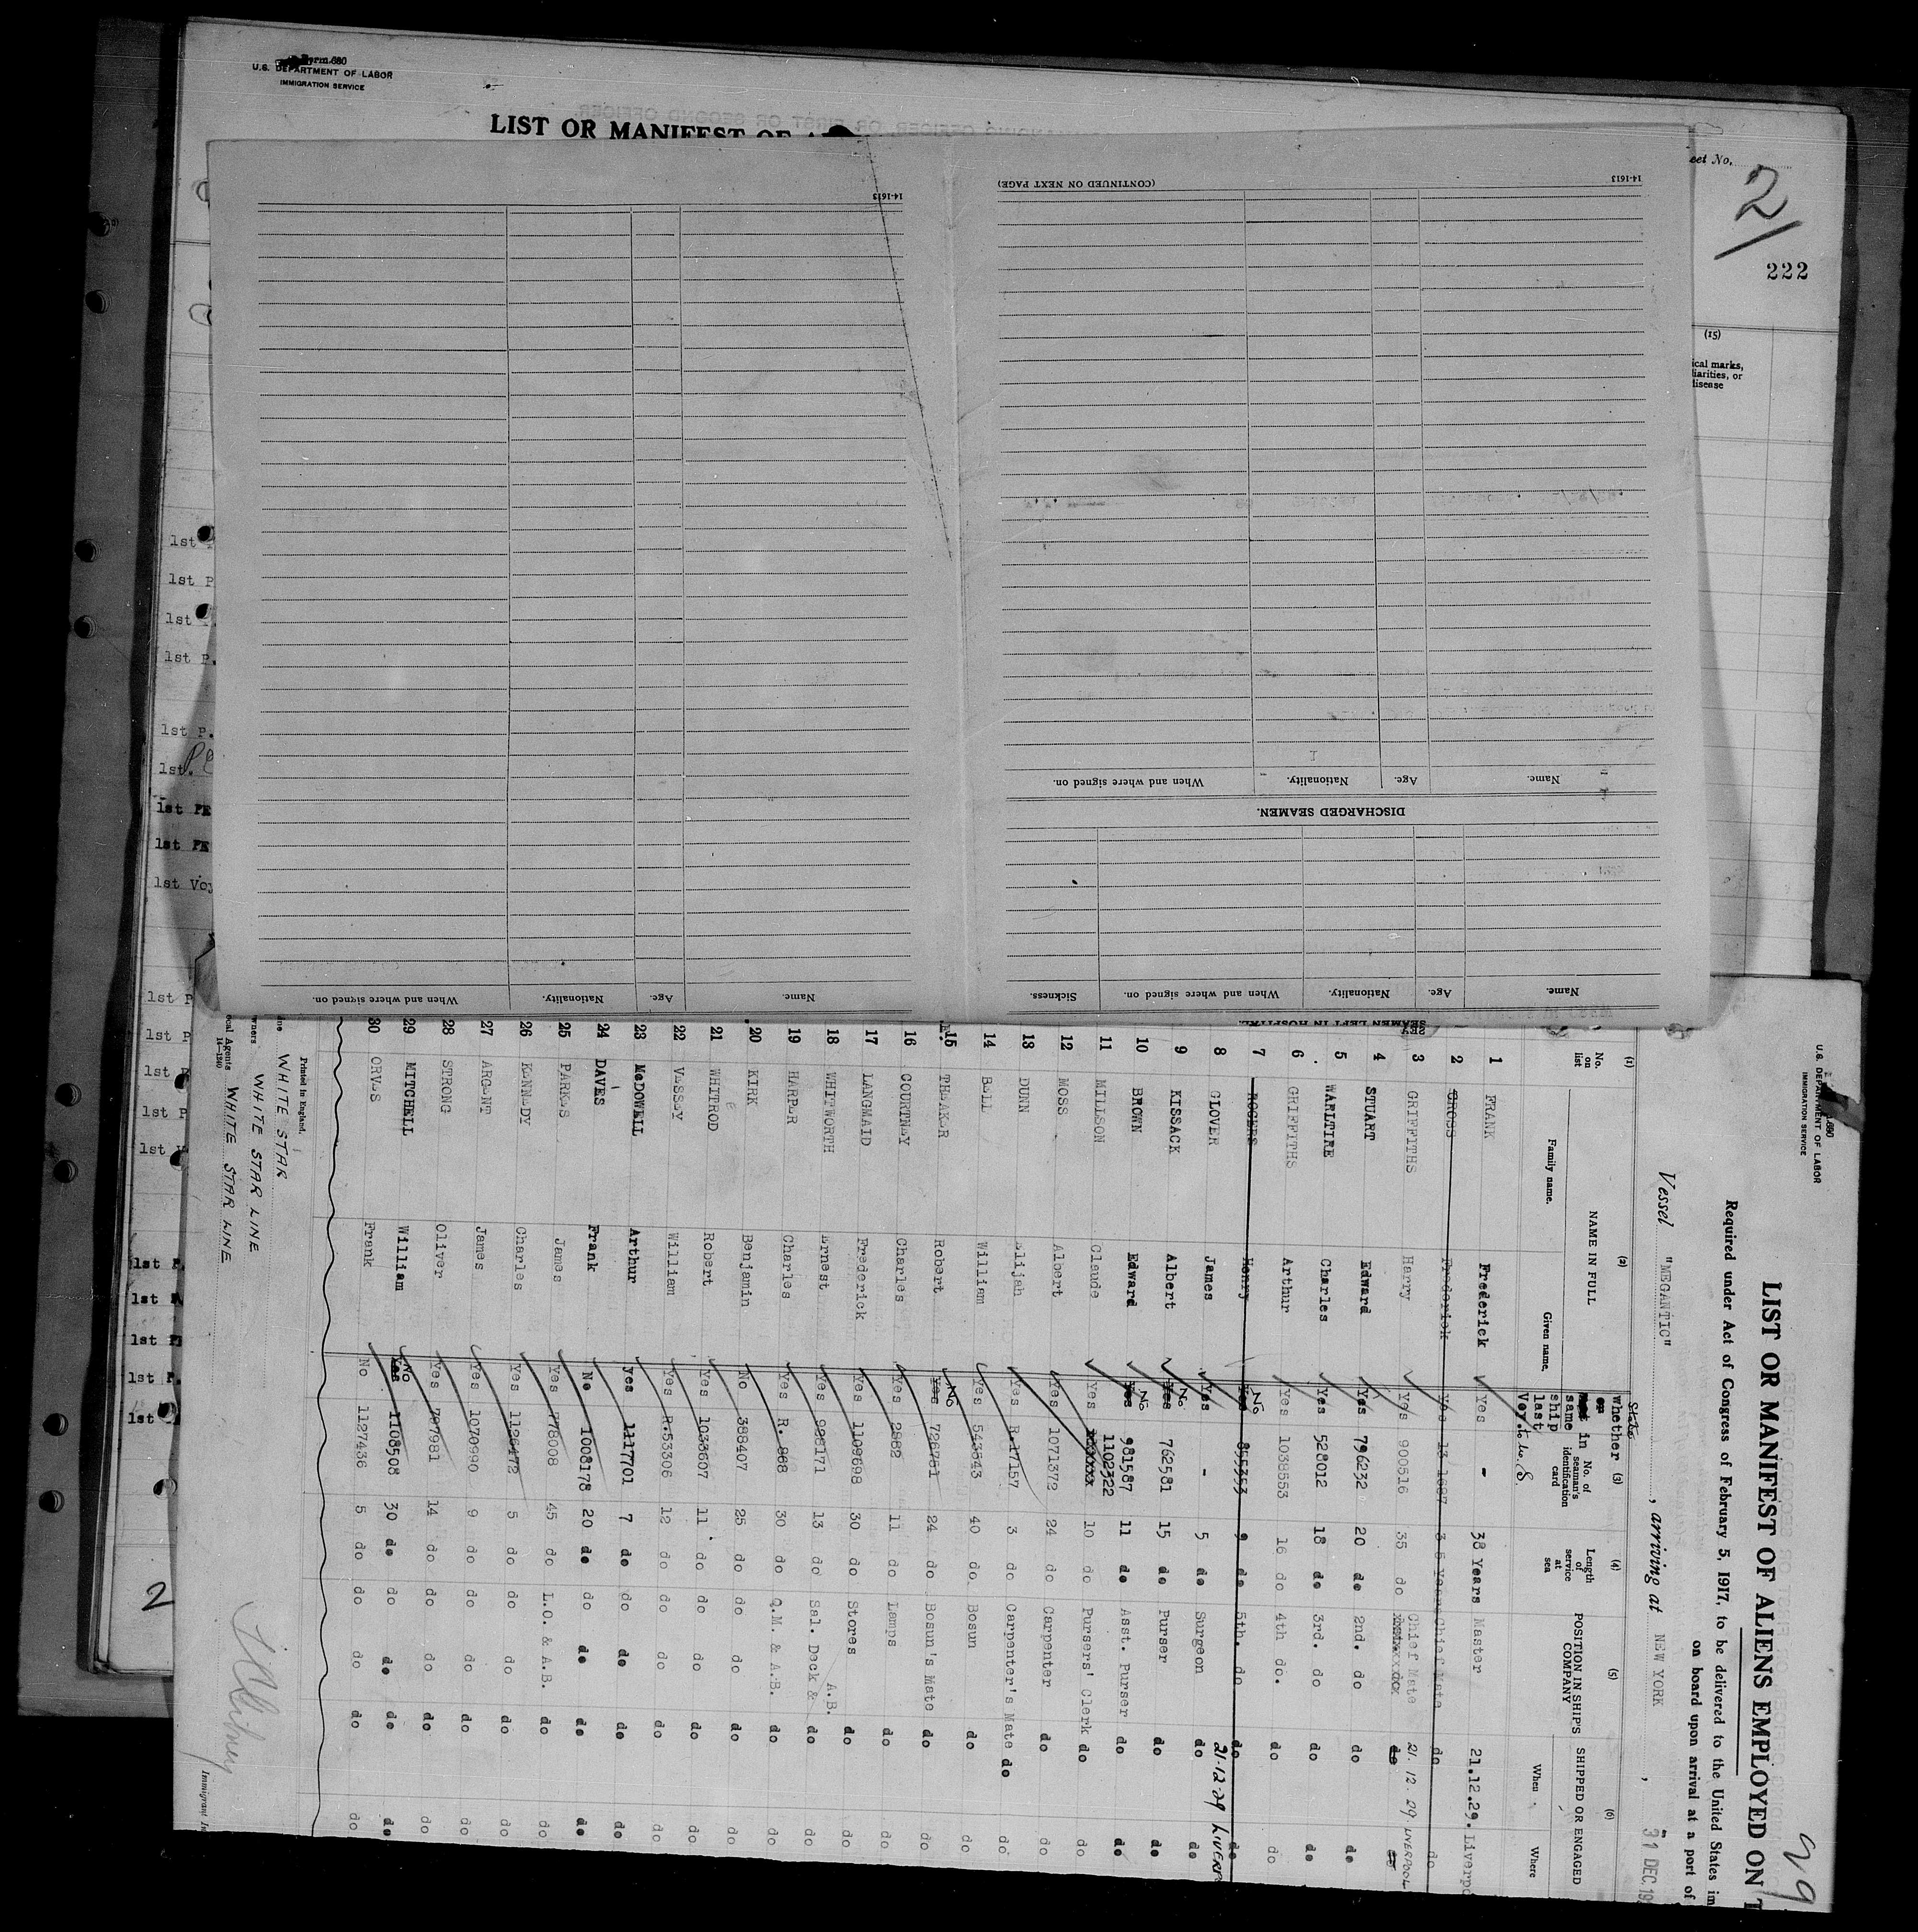 Form 680
U.S. DEPARTMENT OF LABOR
IMMIGRATION SERVICE
LIST OR MANIFEST OF
eet No.
2/
222
(15)
ical marks,
liarities, or
disease
14-1613
14-1613
(CONTINUED ON NEXT PAGE)
Name. Age. Nationality. When and where signed on.
DISCHARGED SEAMEN.
Name. Age. Nationality. When and where signed on. Sickness.
Name. Age. Nationality. When and where signed on.
SEAMEN LEFT IN HOSPITAL
1st P
1st P.
1st P.
1st.
1st PE
1st PE
1st Voy
1st P
1st P
1st P
1st P
1st
1st P.
1st
1st
1st P.
1st
2
680
U.S. DEPARTMENT OF LABOR
IMMIGRATION SERVICE
29
LIST OR MANIFEST OF ALIENS EMPLOYED ON T
Required under Act of Congress of February 5, 1917, to be delivered to the United States im
on board upon arrival at a port of
Vessel "MEGANTIC", arriving at NEW YORK, 31 DEC 19
(1) (2) (3) (4) (5) (6)
No. on list
NAME IN FULL
Family name. Given name.
State whether on same ship last Voy. to U.S.
No. of seaman's identification card
Length of service at sea
POSITION IN SHIP'S COMPANY
SHIPPED OR ENGAGED
When Where
1 FRANK Frederick Yes - 38 Years Master 21.12.29. Liverpo
2 CROSS Frederick Yes 13 1687 3 5 Years Chief Mate do do
3 GRIFFITHS Harry Yes 900516 35 do Chief Mate 21.12.29 LIVERPOOL
4 STUART Edward Yes 796232 20 do 2nd. do do do
5 WARLTIRE Charles Yes 528012 18 do 3rd. do do do
6 GRIFFITHS Arthur Yes 1038553 16 do 4th do. do do
7 ROGERS Henry Yes No 855353 9 do 5th. do do do
8 GLOVER James Yes - 5 do Surgeon do do 21-12-29 LIVERP
9 KISSACK Albert Yes No 762581 15 do Purser do do
10 BROWN Edward Yes No 981587 11 do Asst. Purser do do
11 MILLSON Claude Yes 1102322 10 do Pursers' Clerk do do
12 MOSS Albert Yes 1071372 24 do Carpenter do do
13 DUNN Elijah Yes R.17157 3 do Carpenter's Mate do do
14 BELL William Yes 543343 40 do Bosun do do
15 THEAKER Robert Yes No 726781 24 do Bosun's Mate do do
16 COURTNEY Charles Yes 2882 11 do Lamps do do
17 LANGMAID Frederick Yes 1109698 30 do Stores do do
18 WHITWORTH Ernest Yes 996171 13 do Sal. Deck & A.B. do do
19 HARPER Charles Yes R. 868 30 do Q.M. & A.B. do do
20 KIRK Benjamin No 388407 25 do do do do
21 WHITROD Robert Yes 1033607 11 do do do do
22 VESSEY William Yes R.53306 12 do do do do do
23 McDOWELL Arthur Yes 1117701 7 do do do do do
24 DAVES Frank No 1008178 20 do do do do do
25 PARKES James Yes 778008 45 do L.O. & A.B. do do
26 KENNEDY Charles Yes 1126472 5 do do do do do
27 ARGENT James Yes 1070990 9 do do do do do
28 STRONG Oliver Yes 797981 14 do do do do do
29 MITCHELL William Yes No 1108508 30 do do do do do
30 ORVES Frank No 1127436 5 do do do do do
Printed in England.
ine WHITE STAR
wners WHITE STAR LINE
ocal Agents WHITE STAR LINE
14-1240
Immigrant In